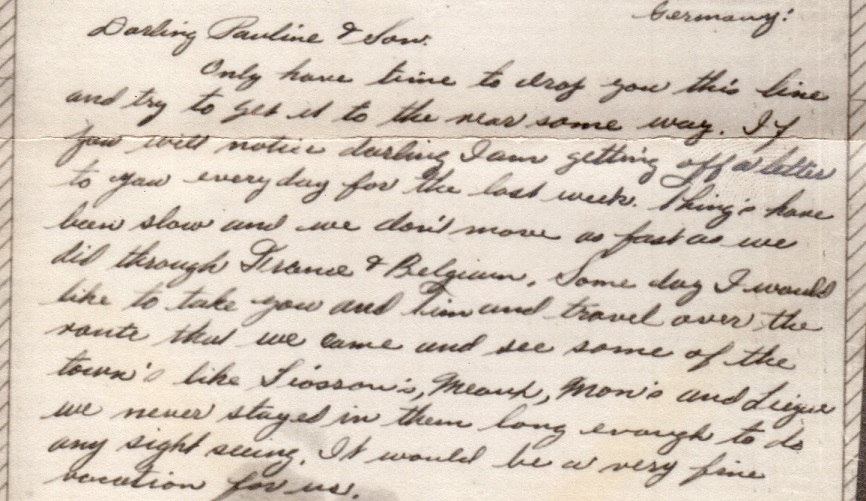 Germany:
Darling Pauline & Son:
Only have time to drop you this line
and try to get it to the rear some way. If
you will notice darling I am getting off a letter
to you everyday for the last week. Thing's have
been slow and we don't move as fast as we
did through France & Belgium. Some day I would
like to take you and Tim and travel over the
route that we came and see some of the
town's like Siosson's, Meaux, Mon's and Liegue
we never stayed in them long enough to do
any sight seeing. It would be a very fine
vacation for us.